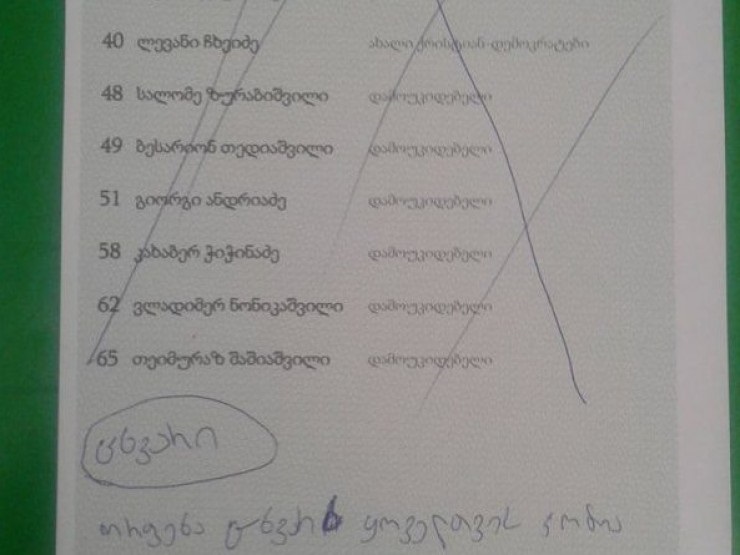 40 ლევანი ჩხეიძე ახალი ქრისტიან-დემოკრატები
48 სალომე ზურაბიშვილი დამოუკიდებელი
49 ბესარიონ თედიაშვილი დამოუკიდებელი
51 გიორგი ანდრიაძე დამოუკიდებელი
58 კახაბერ ჭიჭინაძე დამოუკიდებელი
62 ვლადიმერ ნონიკაშვილი დამოუკიდებელი
65 თეიმურაზ შაშიაშვილი დამოუკიდებელი
ცხვარი
ირჩევს ცხვარს ყოველთვის ჯობია